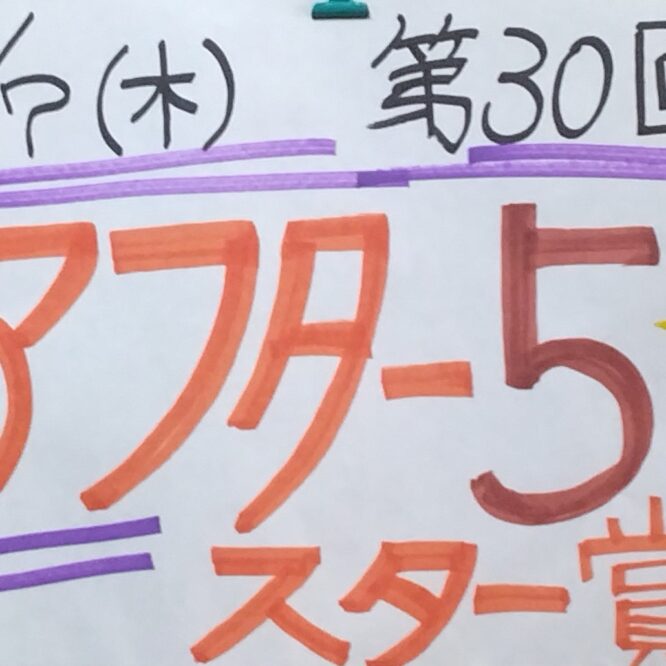 /7(木) 第30回
アフター5
スター賞